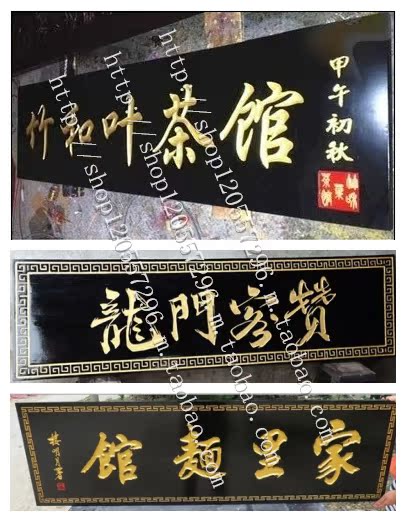 竹和叶茶馆
甲午初秋
龍門客赞
家里麵館
http://shop120557296.m.taobao.com
http://shop120557296.m.taobao.com
http://shop120557296.m.taobao.com